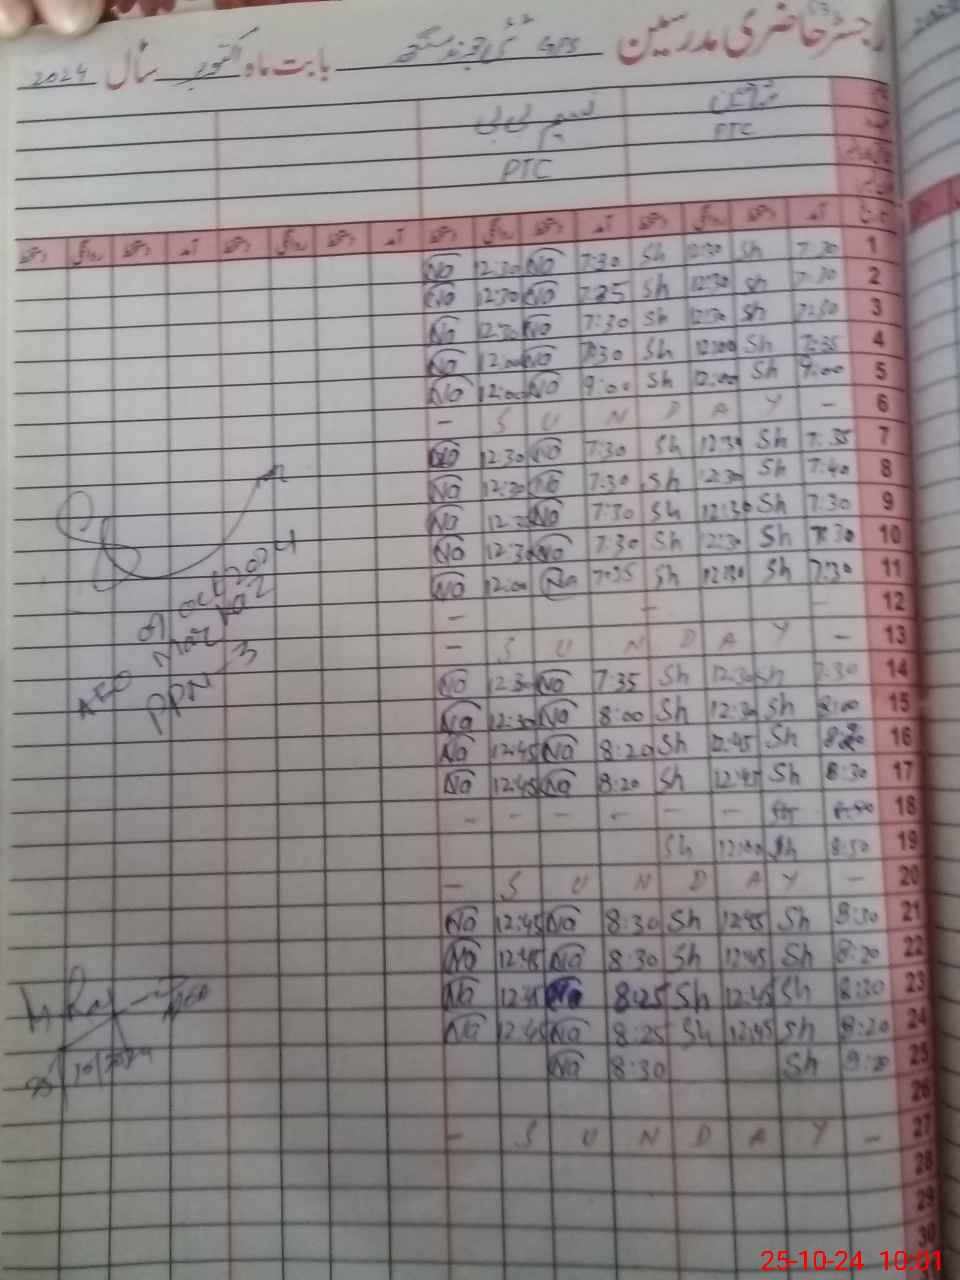 رجسٹر حاضری مدرسین GPS بابت ماہ اکتوبر سال 2024
نسیم بی بی
PTC PTC
آمد دستخط روانگی دستخط آمد دستخط روانگی دستخط آمد دستخط روانگی دستخط آمد دستخط روانگی دستخط
1 7:30 Sh 12:30 Sh 7:30 No 12:30 No
2 7:30 Sh 12:30 Sh 7:25 No 12:30 No
3 7:30 Sh 12:30 Sh 7:30 No 12:30 No
4 7:35 Sh 12:00 Sh 7:30 No 12:00 No
5 9:00 Sh 12:00 Sh 9:00 No 12:00 No
6 - S U N D A Y -
7 7:35 Sh 12:30 Sh 7:30 No 12:30 No
8 7:40 Sh 12:30 Sh 7:30 No 12:30 No
9 7:30 Sh 12:30 Sh 7:30 No 12:30 No
10 7:30 Sh 12:30 Sh 7:30 No 12:30 No
11 7:30 Sh 12:30 Sh 7:35 No 12:00 No
12 - - -
13 - S U N D A Y -
14 7:30 Sh 12:30 Sh 7:35 No 12:30 No
15 8:00 Sh 12:30 Sh 8:00 No 12:30 No
16 8:20 Sh 12:45 Sh 8:20 No 12:45 No
17 8:30 Sh 12:45 Sh 8:20 No 12:45 No
18 - - - - - -
19 8:50 Sh 12:00 Sh
20 - S U N D A Y -
21 8:30 Sh 12:45 Sh 8:30 No 12:45 No
22 8:20 Sh 12:45 Sh 8:30 No 12:45 No
23 8:30 Sh 12:45 Sh 8:25 No 12:45 No
24 8:20 Sh 12:45 Sh 8:25 No 12:45 No
25 Sh 8:30 No
26
27 - S U N D A Y -
28
29
30
AEO Markaz
PPN-3
25/10/2024
25-10-24 10:01